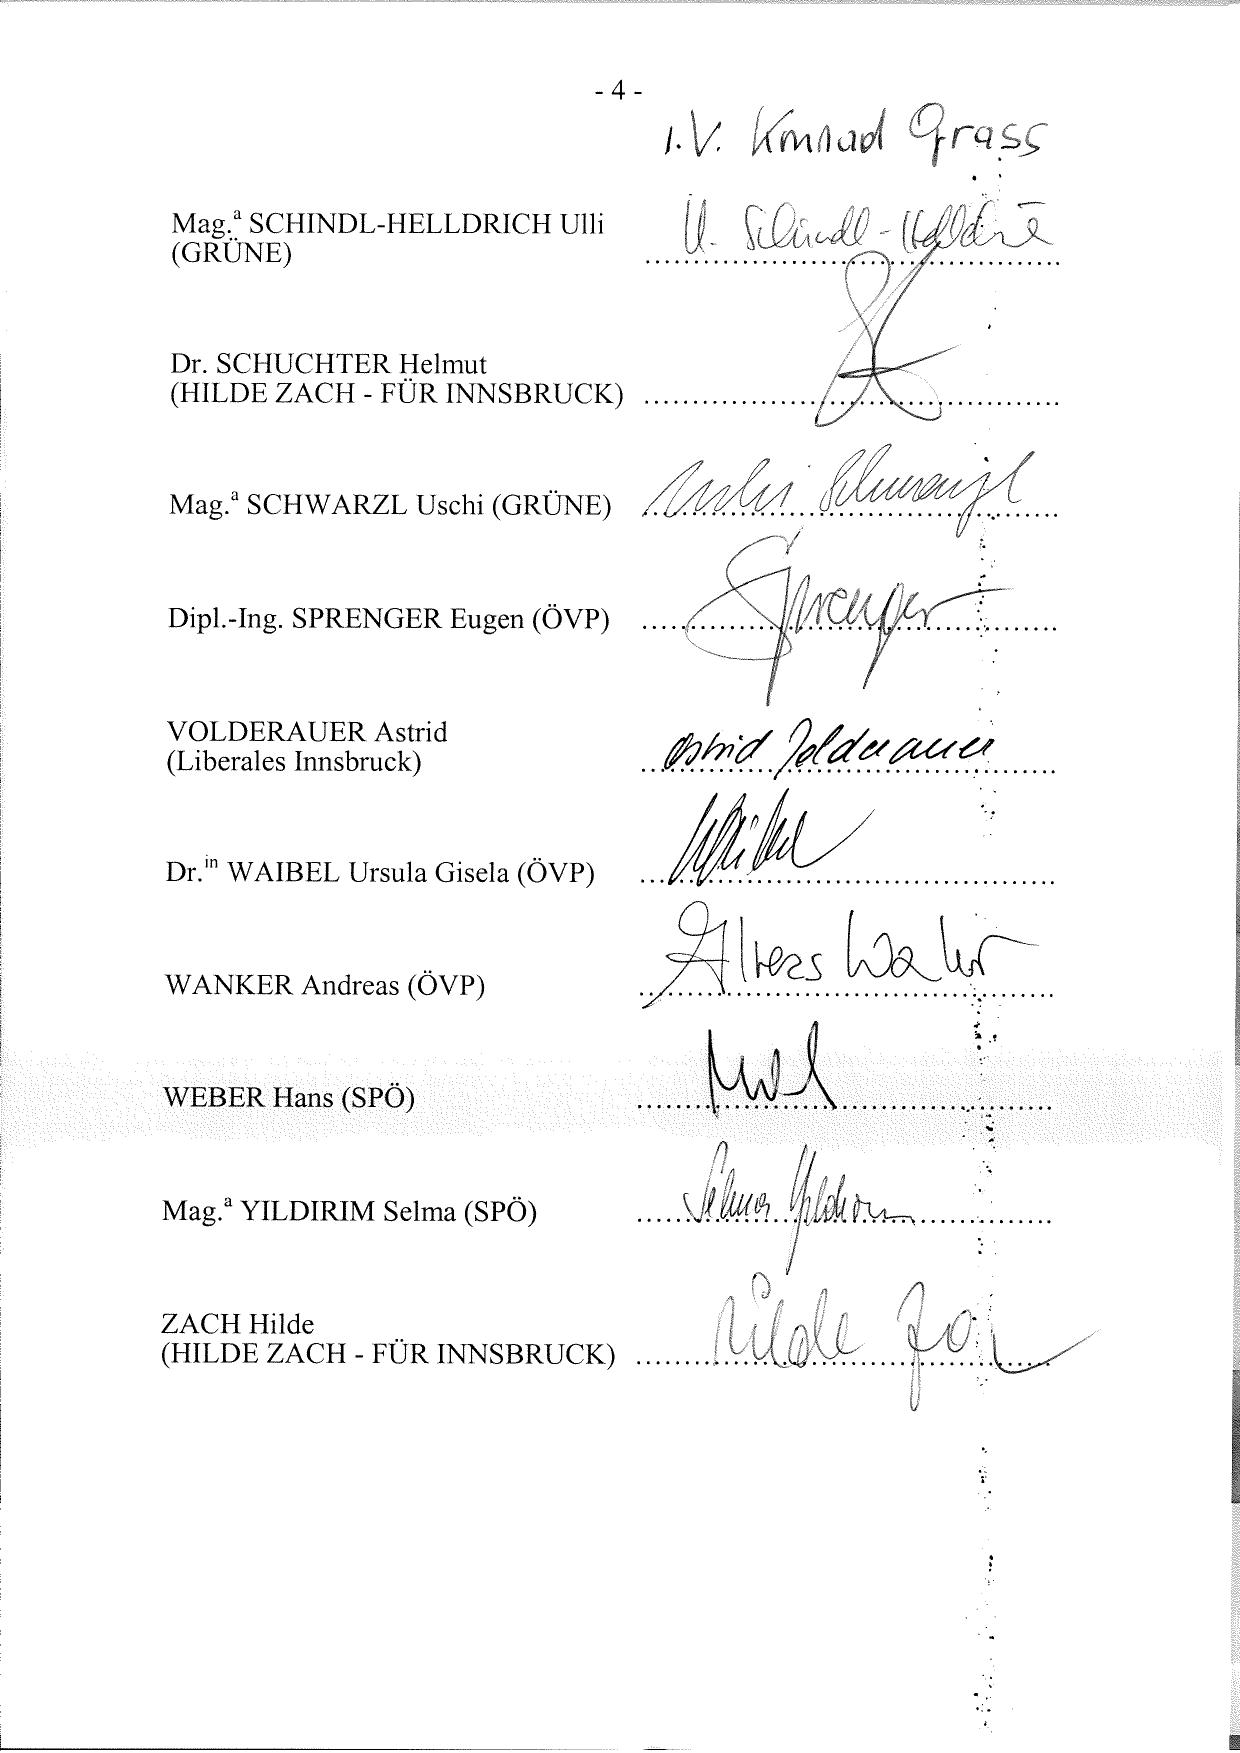 - 4 -
I.V. Konrad Grass
Mag.ª SCHINDL-HELLDRICH Ulli
(GRÜNE)
U. Schindl-Helldri
Dr. SCHUCHTER Helmut
(HILDE ZACH - FÜR INNSBRUCK)
Mag.ª SCHWARZL Uschi (GRÜNE)
Uschi Schwarzl
Dipl.-Ing. SPRENGER Eugen (ÖVP)
Sprenger
VOLDERAUER Astrid
(Liberales Innsbruck)
Astrid Volderauer
Dr.ⁱⁿ WAIBEL Ursula Gisela (ÖVP)
Waibel
WANKER Andreas (ÖVP)
WEBER Hans (SPÖ)
Mag.ª YILDIRIM Selma (SPÖ)
Selma Yildirim
ZACH Hilde
(HILDE ZACH - FÜR INNSBRUCK)
Hilde Zach